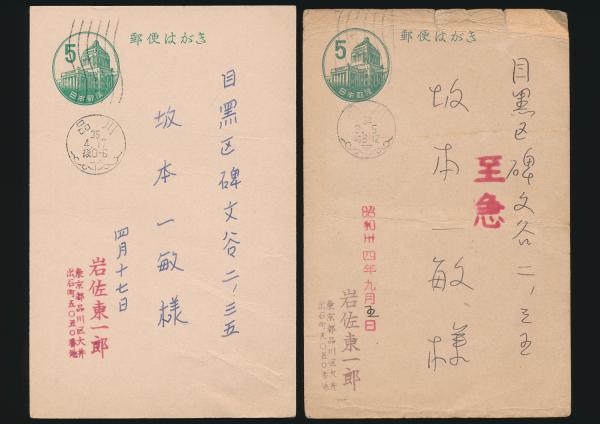 郵便はがき
5
日本郵便
品川
35
4.17
後0-6
目黒区碑文谷二、三五
坂本一敏様
四月十七日
岩佐東一郎
東京都品川区大井
出石町五〇五〇番地
郵便はがき
5
日本郵便
目黒区碑文谷二、三五
至急
坂本一敏様
昭和卅四年九月五日
岩佐東一郎
東京都品川区大井
出石町五〇五〇番地